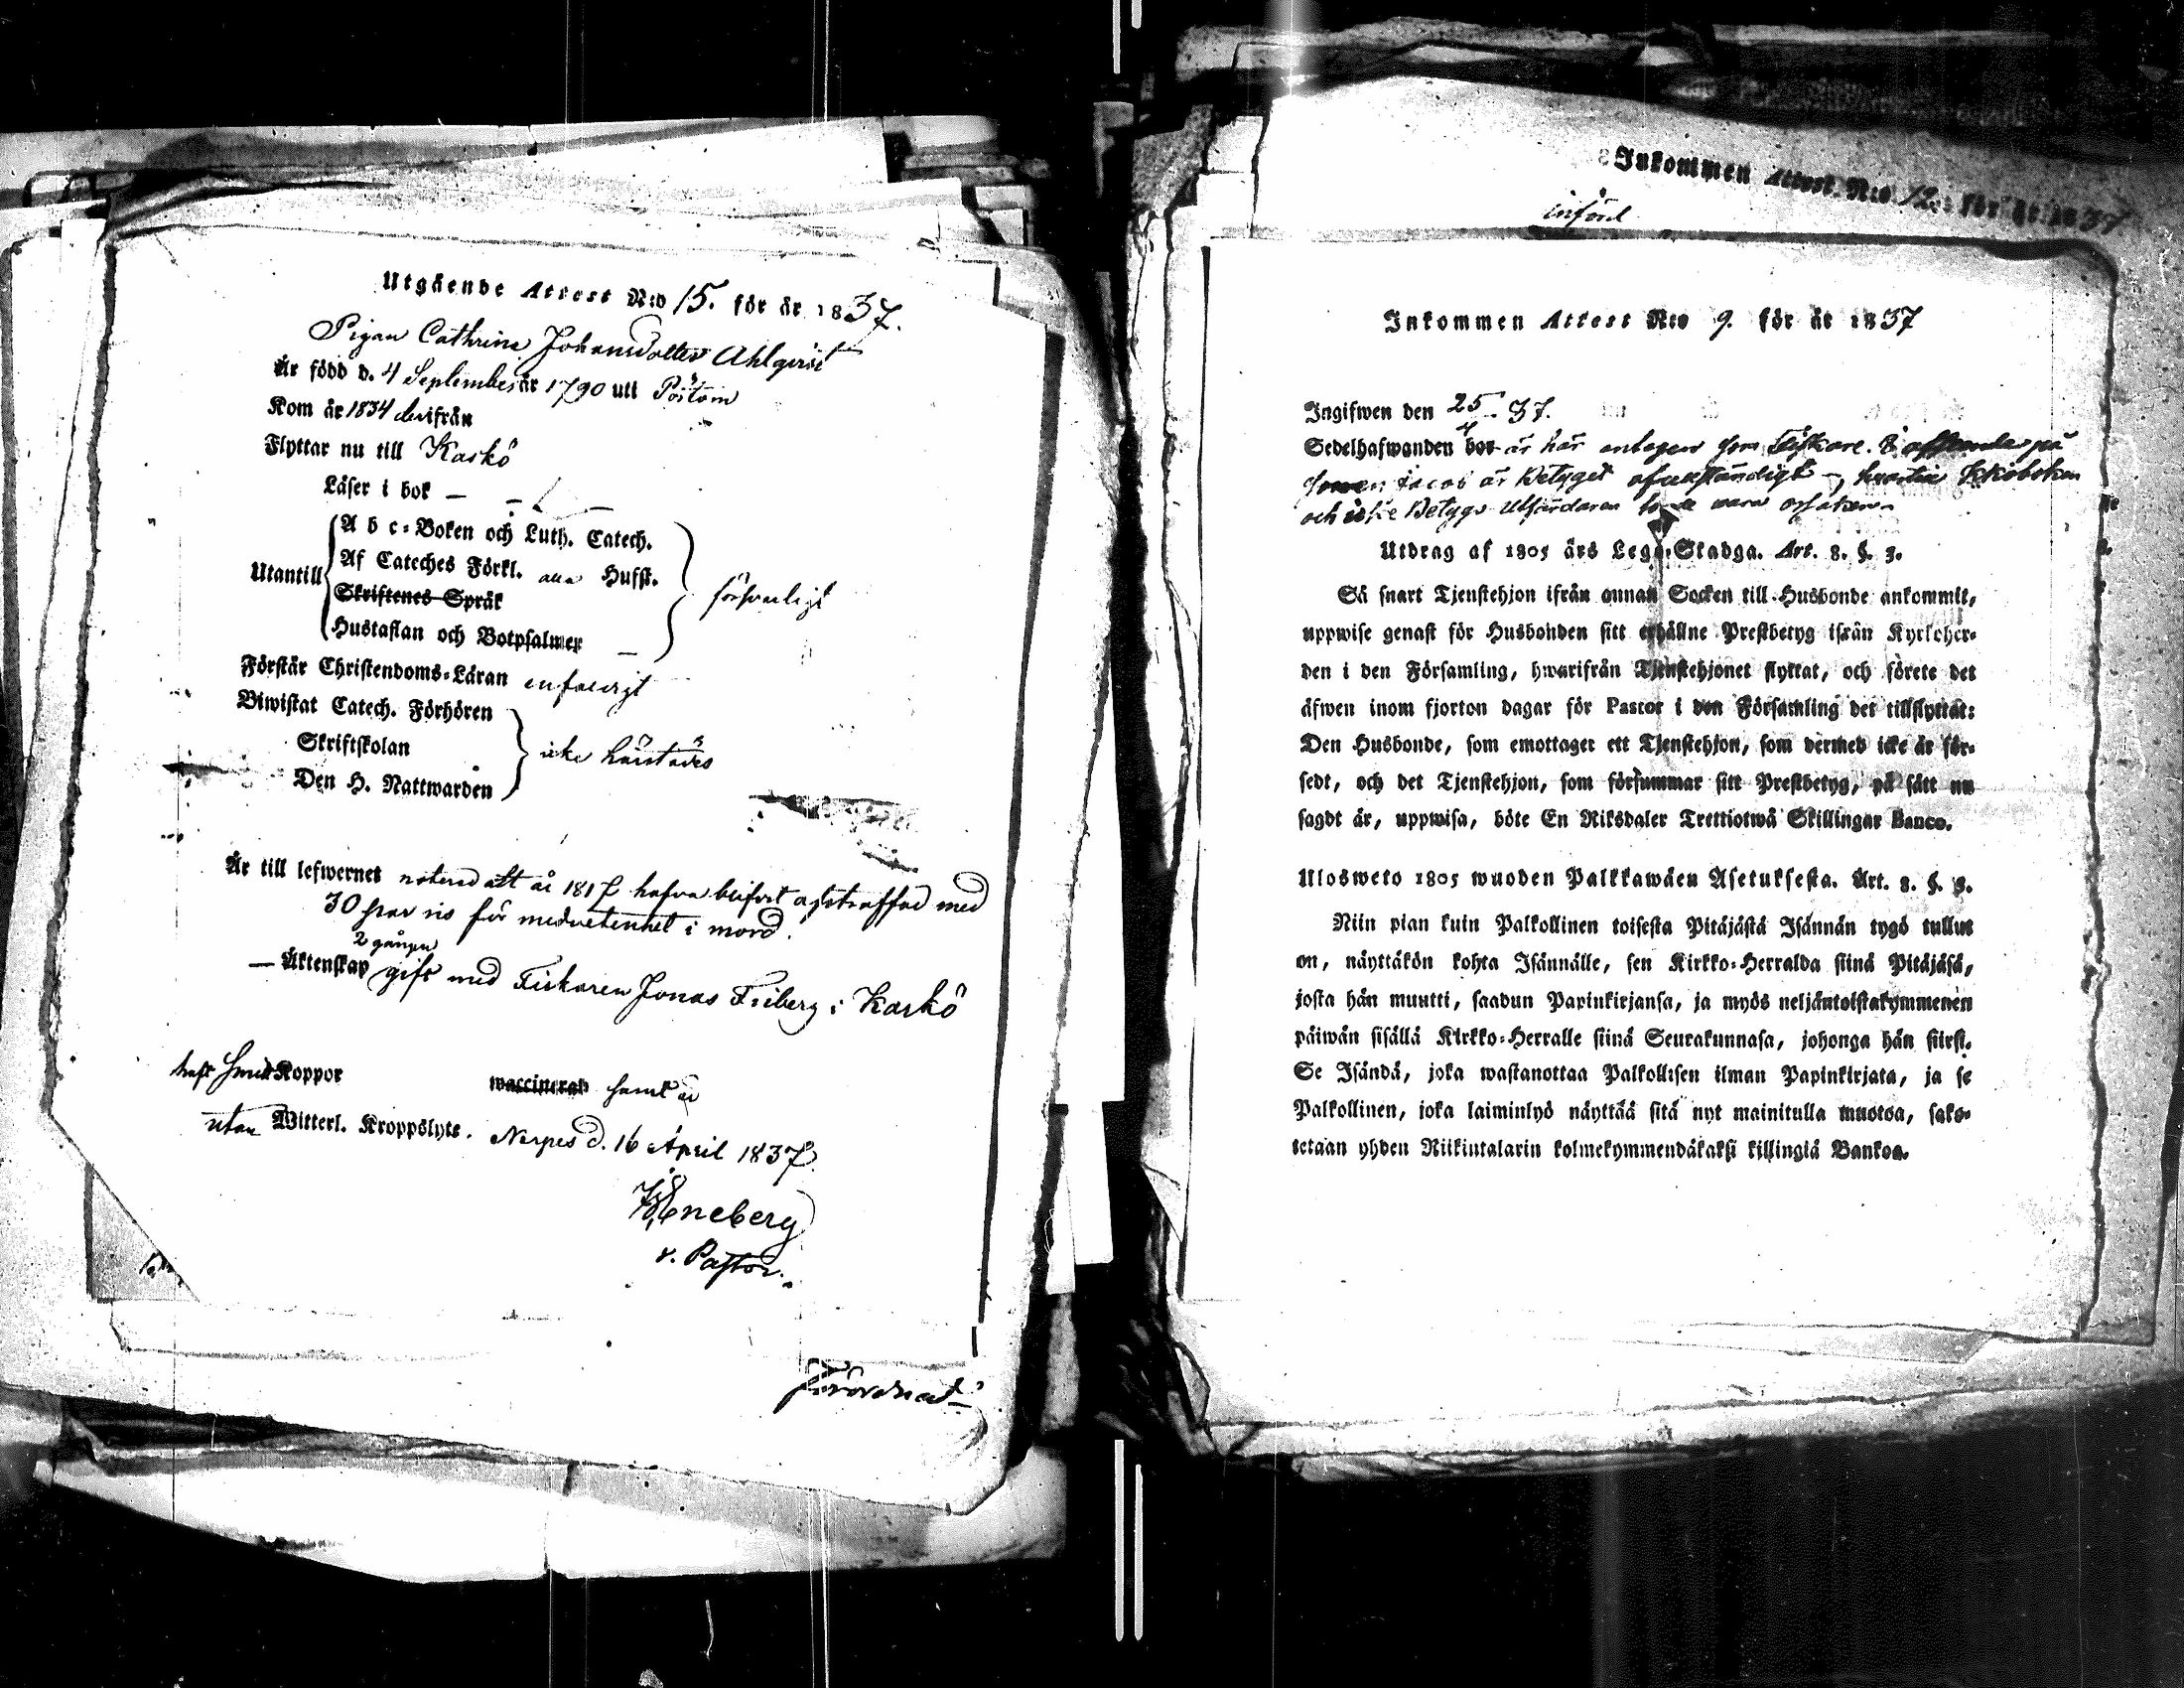 Utgående Attest N:o 15. för år 1837.
Pigan Cathrina Johansdotter Ahlqvist
Är född d. 4 September år 1790 uti Pörtom
Kom år 1834 derifrån
Flyttar nu till Kaskö
Läser i bok —
Utantill
A b c-Boken och Luth. Catech.
Af Cateches Förkl. Husst.
Skriftenes Språk
Hustaflan och Botpsalmer
försvarligt
Förstår Christendoms-Läran enfaldigt
Biwistat Catech. Förhören
Skriftskolan
Den H. Nattwarden
icke härstädes
Är till lefwernet noterad att år 1817 hafva blifvit afstraffad med
30 par ris för medvetenhet i mord.
2 gången
— Äktenskap gift med Fiskaren Jonas Friberg i Kaskö
haft Koppor waccinerad samt är
utan Witterl. Kroppslyte. Nerpes d. 16 April 1837.
Eneberg
v. Pastor.
Inkommen Attest. N:o 12. för år 1837
införd
Inkommen Attest N:o 9. för år 1837
Ingifwen den 25/4 37.
Sedelhafwanden bor är här antagen som Fiskare.
är Betyget ofullständigt
och icke Betygs Utfärdaren vara orsaken.
Utdrag af 1805 års Lego-Stadga. Art. 8. §. 3.
Så snart Tjenstehjon ifrån annan Socken till Husbonde ankommit,
uppwise genast för Husbonden sitt erhållne Prestbetyg ifrån Kyrkoher-
den i den Församling, hwarifrån Tjenstehjonet flyttat, och förete det
äfwen inom fjorton dagar för Pastor i den Församling det tillflyttat:
Den Husbonde, som emottager ett Tjenstehjon, som dermed icke är för-
sedt, och det Tjenstehjon, som försummar sitt Prestbetyg, på sätt nu
sagdt är, uppwisa, böte En Riksdaler Trettiotwå Skillingar Banco.
Ulosweto 1805 wuoden Palkkawäen Asetuksesta. Art. 8. §. 3.
Niin pian kuin Palkollinen toisesta Pitäjästä Isännän tygö tullut
on, näyttäkön kohta Isännälle, sen Kirkko-Herralda siinä Pitäjäsä,
josta hän muutti, saadun Papinkirjansa, ja myös neljäntoistakymmenen
päiwän sisällä Kirkko-Herralle siinä Seurakunnasa, johonga hän siirsi.
Se Isändä, joka wastanottaa Palkollisen ilman Papinkirjata, ja se
Palkollinen, joka laiminlyö näyttää sitä nyt mainitulla muotoa, sako-
tetaan yhden Riikintalarin kolmekymmendäkaksi killingiä Bankoa.